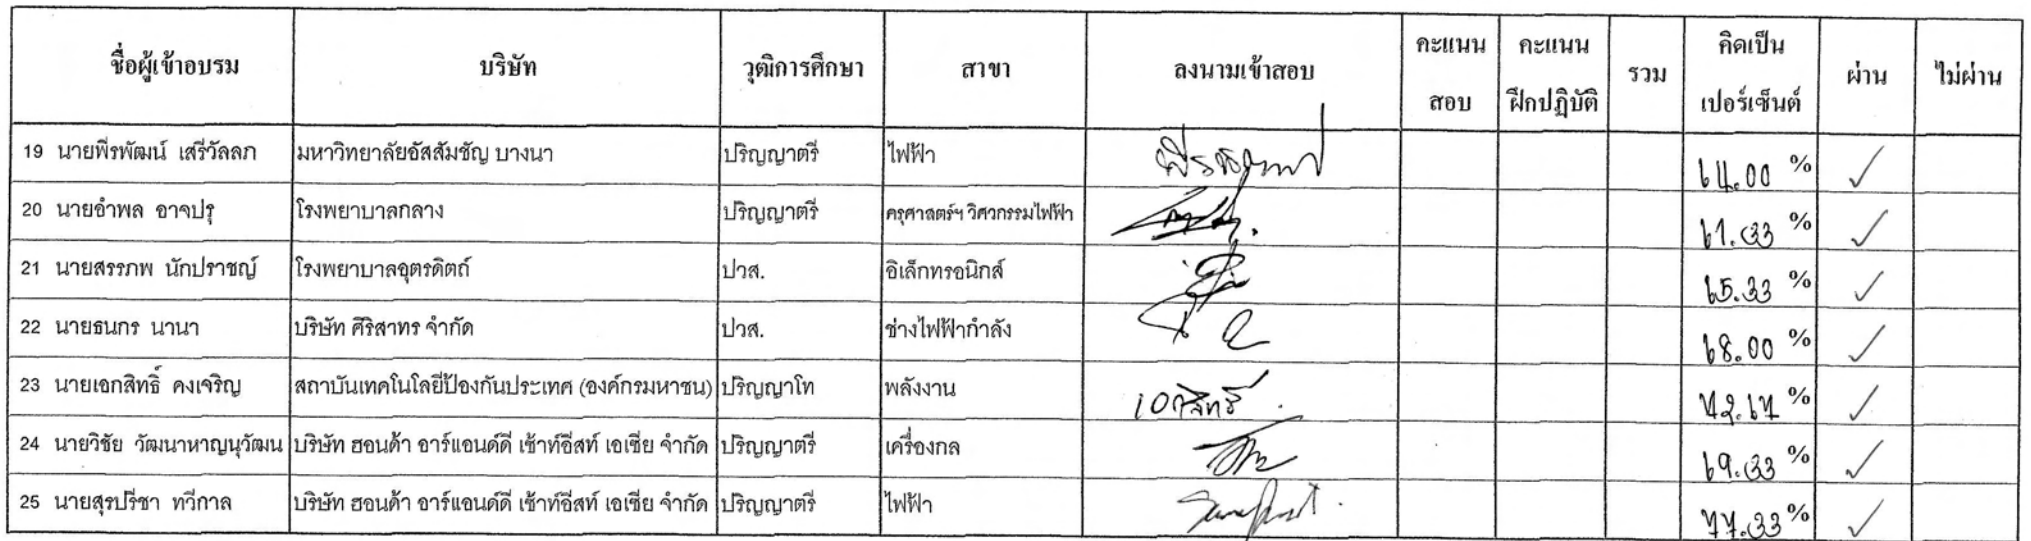 ชื่อผู้เข้าอบรม บริษัท วุฒิการศึกษา สาขา ลงนามเข้าสอบ คะแนนสอบ คะแนนฝึกปฏิบัติ รวม คิดเป็นเปอร์เซ็นต์ ผ่าน ไม่ผ่าน
19 นายพีรพัฒน์ เสรีวัลลภ มหาวิทยาลัยอัสสัมชัญ บางนา ปริญญาตรี ไฟฟ้า 64.00 % ✓
20 นายอำพล อาจปรุ โรงพยาบาลกลาง ปริญญาตรี ครุศาสตร์ฯ วิศวกรรมไฟฟ้า 61.33 % ✓
21 นายสรรภพ นักปราชญ์ โรงพยาบาลอุตรดิตถ์ ปวส. อิเล็กทรอนิกส์ 65.33 % ✓
22 นายธนกร นานา บริษัท ศิริสาทร จำกัด ปวส. ช่างไฟฟ้ากำลัง 68.00 % ✓
23 นายเอกสิทธิ์ คงเจริญ สถาบันเทคโนโลยีป้องกันประเทศ (องค์กรมหาชน) ปริญญาโท พลังงาน เอกสิทธิ์ 72.67 % ✓
24 นายวิชัย วัฒนาหาญนุวัฒน บริษัท ฮอนด้า อาร์แอนด์ดี เซ้าท์อีสท์ เอเซีย จำกัด ปริญญาตรี เครื่องกล 69.33 % ✓
25 นายสุรปรีชา ทวีกาล บริษัท ฮอนด้า อาร์แอนด์ดี เซ้าท์อีสท์ เอเซีย จำกัด ปริญญาตรี ไฟฟ้า 77.33 % ✓